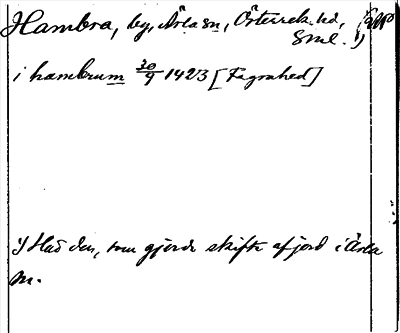 Hambra, by, Årla sn, Österrek. hd,
Sml. 1)
i hambrum 30/9 1423 [Fagrahed]
1) Har den, som gjorde skifte af jord i Årla
sn.